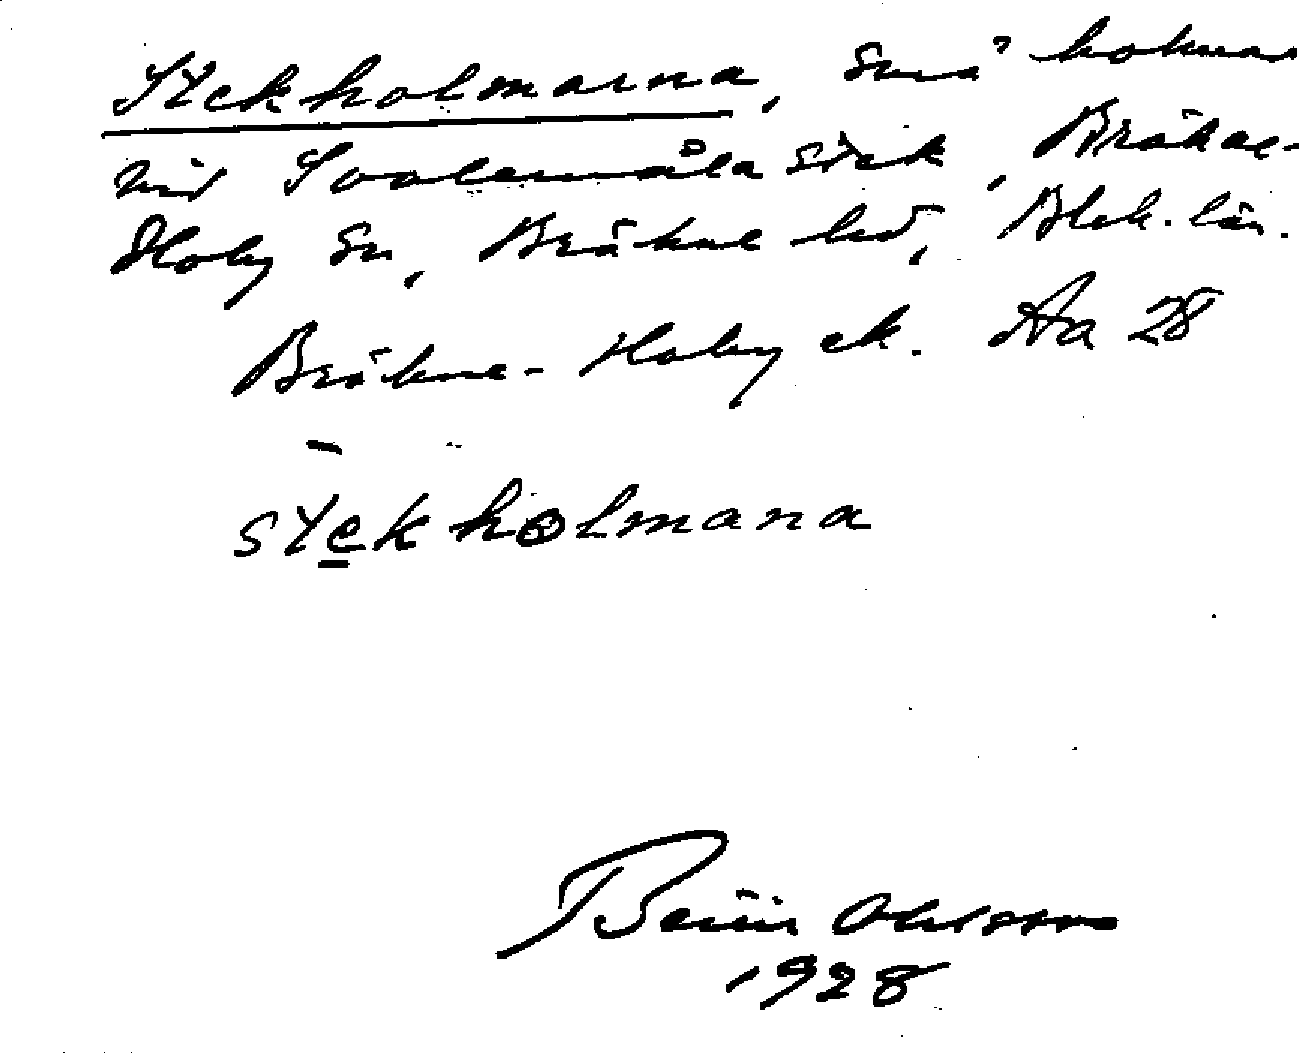 Stekholmarna, små holmar
vid Svalemåla stek, Bräkne-
Hoby sn, Bräkne hd, Blek. län.
Bräkne-Hoby ek. Aa 28
stekholmana
Ohlsson
1928